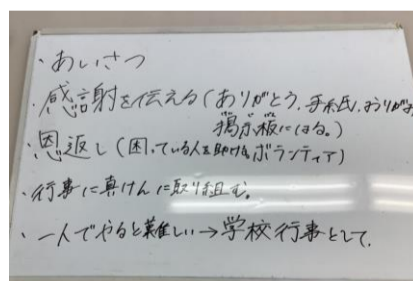 ・あいさつ
・感謝を伝える(ありがとう、手紙、ありがとう
掲示板にはる。)
・恩返し(困っている人を助ける、ボランティア)
・行事に真けんに取り組む。
・一人でやると難しい→学校行事として、